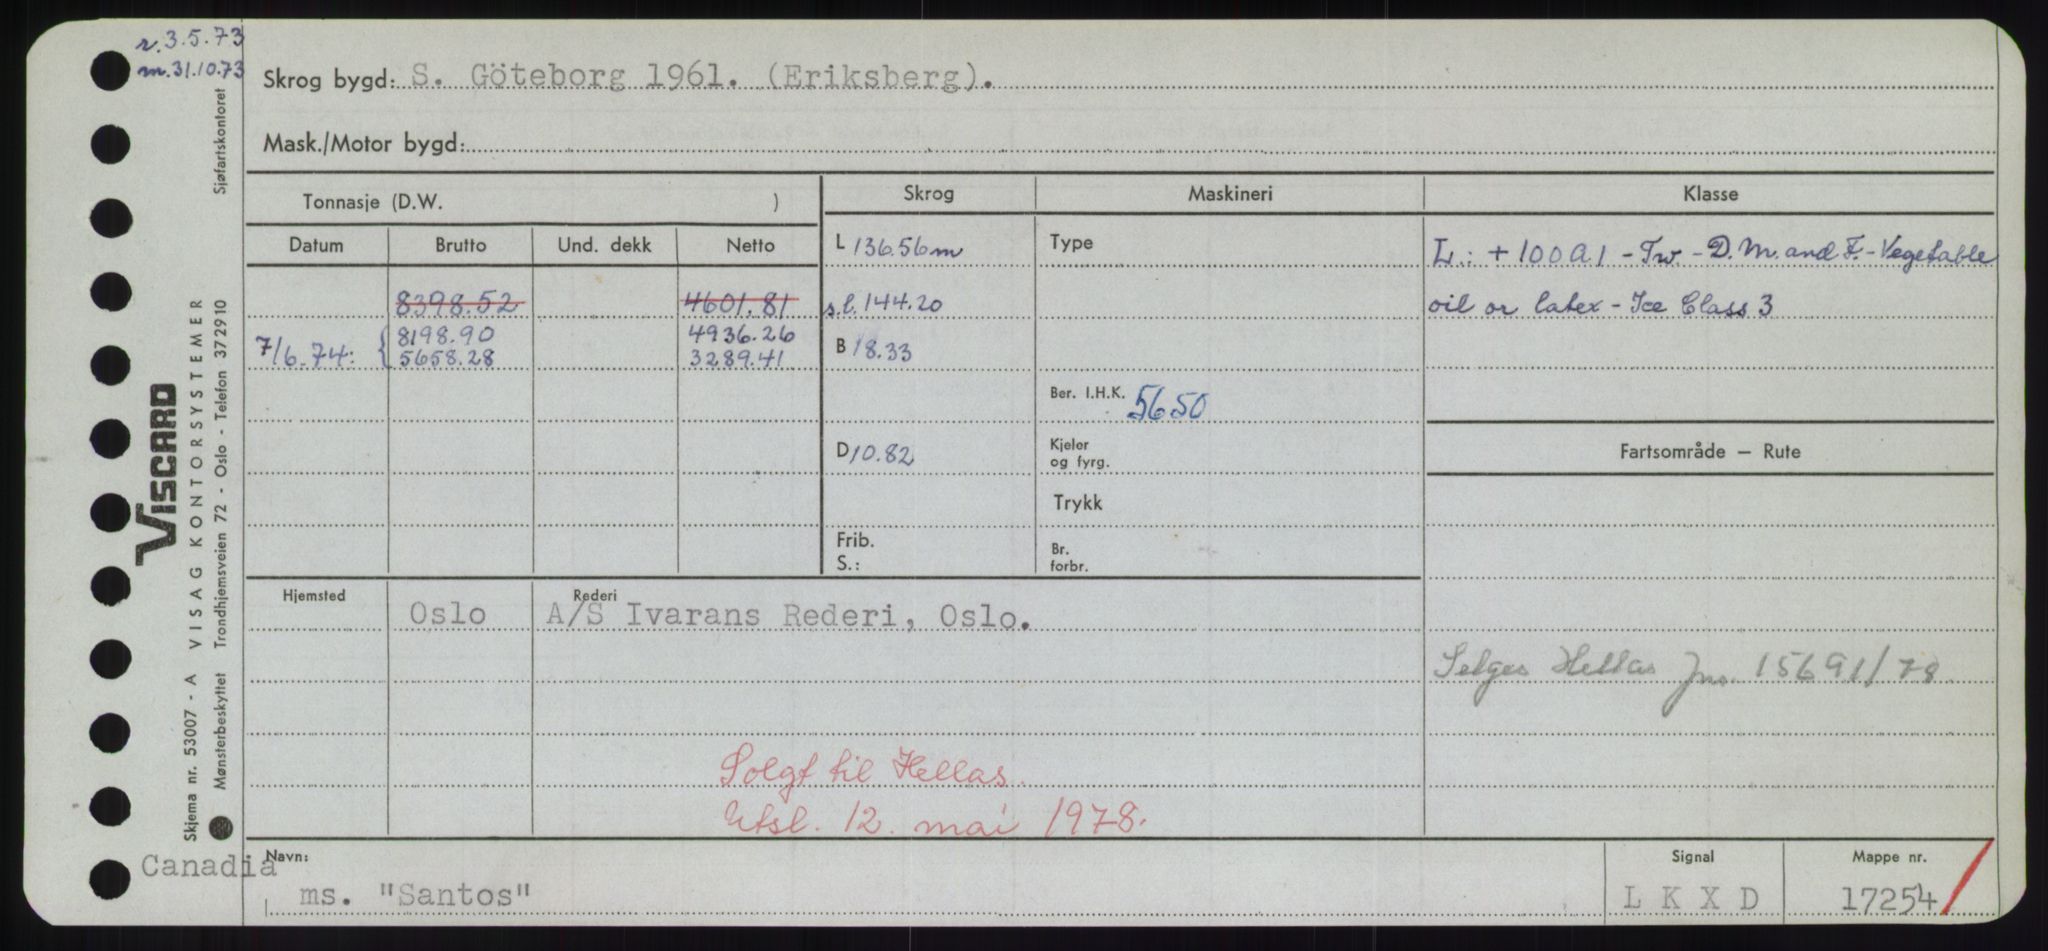 r. 3.5.73
m. 31.10.73
Skrog bygd: S. Göteborg 1961. (Eriksberg).
Mask./Motor bygd:
Tonnasje (D.W. )
Skrog
Maskineri
Klasse
Datum Brutto Und. dekk Netto
L 136.56 m
Type
L: + 100 A 1 - Tw. - D. M. and F. - Vegetable
8398.52 4601.81
s.l. 144.20
oil or latex - Ice Class 3
7/6.74: { 8198.90 4936.26
5658.28 3289.41
B 18.33
Ber. I.H.K. 5650
D 10.82
Kjeler
og fyrg.
Fartsområde — Rute
Trykk
Frib.
S.:
Br.
forbr.
Hjemsted Oslo
Rederi
A/S Ivarans Rederi, Oslo.
Selges Hellas Jnr. 15691/78
Solgt til Hellas.
Utsl. 12. mai 1978.
Navn:
Canadia
ms. "Santos"
Signal
L K X D
Mappe nr.
17254
VISCARD
Skjema nr. 53007 - A VISAG KONTORSYSTEMER
Mønsterbeskyttet Trondhjemsveien 72 - Oslo - Telefon 372910 Sjøfartskontoret